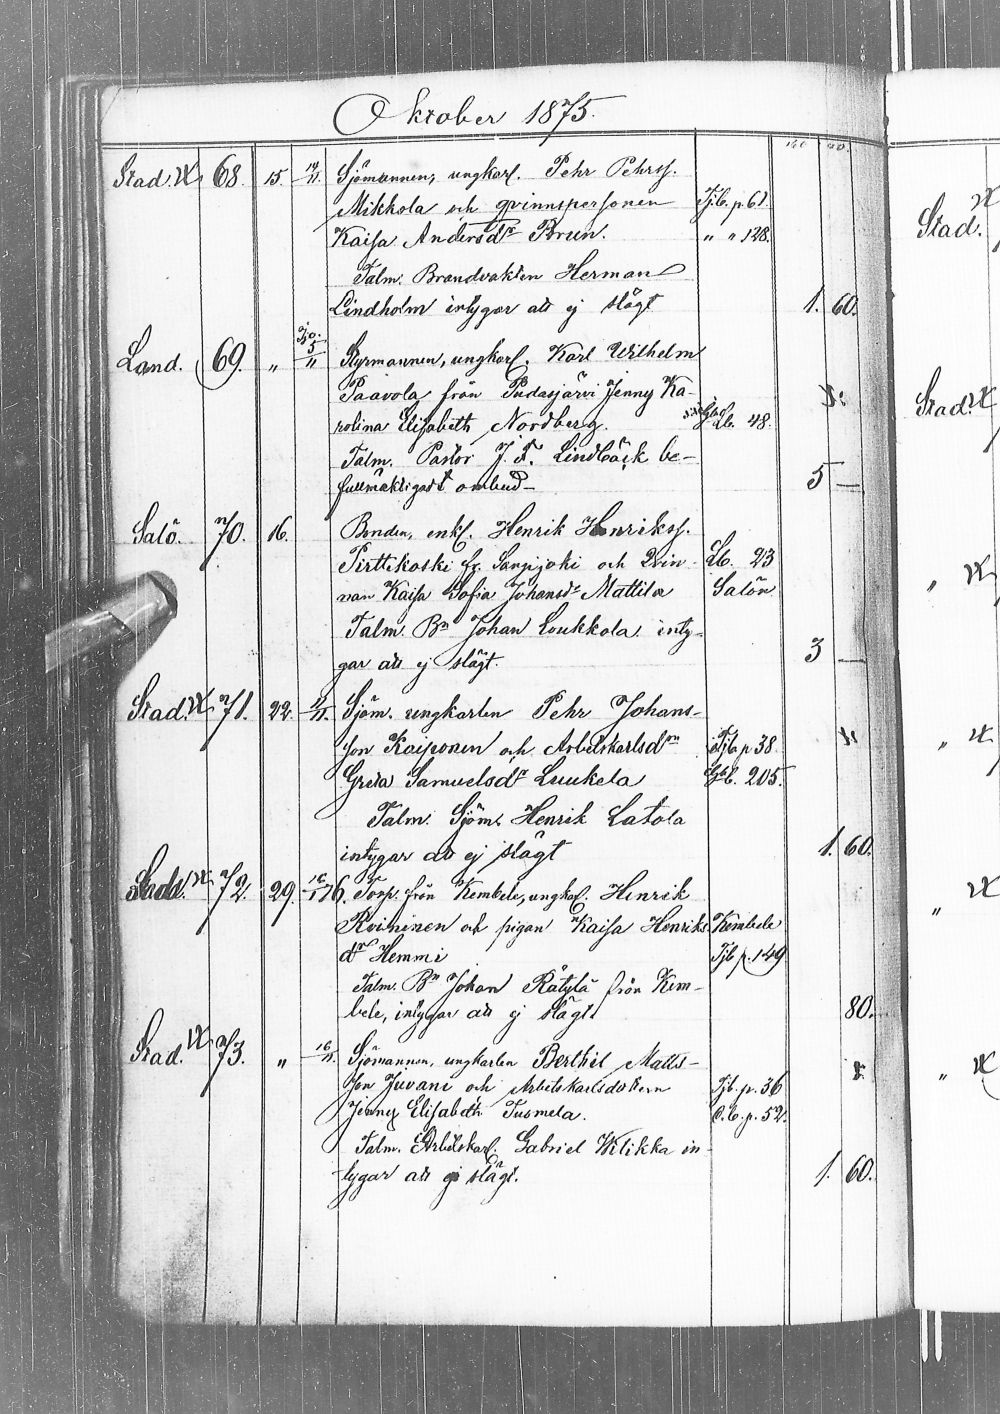 Oktober 1875.
Stad. 68. 15. 14/11. Sjömannen, ungkarl. Pehr Pehrss.
Mikkola och qvinnspersonen Tjb. p. 61.
Kaisa Andersdr Brun. „ „ 128.
Talm. Brandvakten Herman
Lindholm intygar att ej slägt 1. 60.
Land. 69. „ 5/11 Styrmannen, ungkarl. Karl Wilhelm
Paavola från Pudasjärvi Jenny Ka-
rolina Elisabeth Nordberg. Lb. 48.
Talm. Pastor J. F. Lindbäck be-
fullmäktigadt ombud 5 —
Salö. 70. 16. Bonden, enkl. Henrik Henrikss.
Pirttikoski fr. Sangijoki och Qvin- Lb. 23
nan Kaisa Sofia Johansdr Mattila Salön
Talm. Bn Johan Loukkola inty-
gar att ej slägt. 3 —
Stad. 71. 22. Sjöm. ungkarlen Pehr Johans-
son Kaiponen och Arbetskarlsdn Tjb. p 38.
Greta Samuelsdr Luukela Gb. 205.
Talm. Sjöm. Henrik Latola
intygar att ej slägt 1. 60.
72. 29. Torp. från Kembele, ungkarl. Henrik
Roininen och pigan Kaisa Henriks- Kembele
dr Hemmi Tjb p. 149
Talm. Bn Johan Rätylä från Kem-
bele, intygar att ej slägt. 80.
Stad. 73. „ 16/11. Sjömannen, ungkarlen Berthil Matts-
son Juvani och Arbetskarlsdottern Tjb. p. 36
Jenny Elisabeth Tuomela. p. 52.
Talm. Arbetskarl. Gabriel Wilikka in-
tygar att ej slägt. 1. 60.
Stad.
Stad.
„
„
„
„